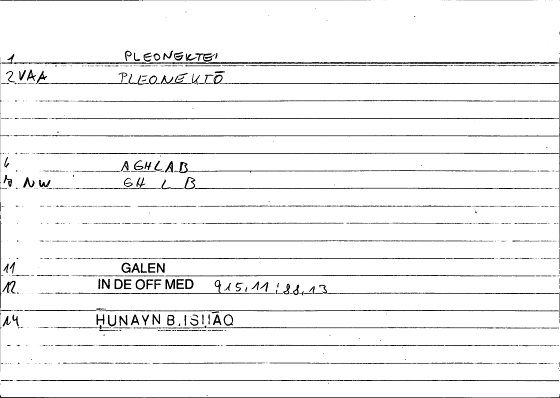 1 PLEONEKTEI
2 VAA PLEONEKTŌ
6 AGHLAB
NW GH L B
11 GALEN
12. IN DE OFF MED 915,11 : 88,13
14 ḤUNAYN B. ISḤĀQ